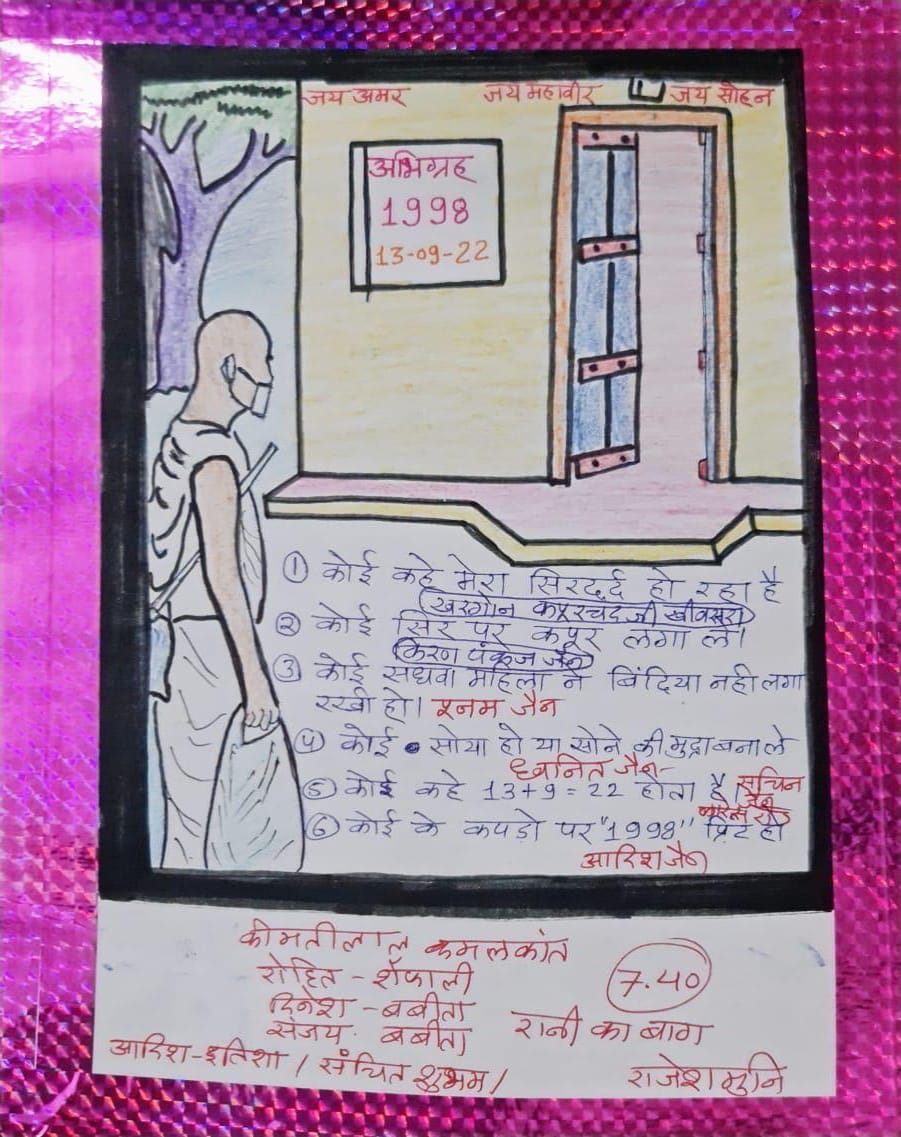 जय अमर जय महावीर जय सोहन
अभिग्रह
1998
13-09-22
① कोई कहे मेरा सिरदर्द हो रहा है
खरगोन कपूरचंदजी खींवसरा
② कोई सिर पर कपूर लगा ले।
किरण पंकज जैन
③ कोई सधवा महिला ने बिंदिया नही लगा
रखी हो। जैन
④ कोई सोया हो या सोने की मुद्रा बना ले
ध्वनित जैन
⑤ कोई कहे 13+9=22 होता है। सचिन
जैन
⑥ कोई के कपडो पर "1998" प्रिंट हो
आदिश जैन
कीमतीलाल कमलकांत
रोहित - शेफाली
दिनेश - बबीता
संजय - बबीता
7.40
रानी का बाग
आदिश-इतिशा / संचित शुभम /
राजेश मुनि